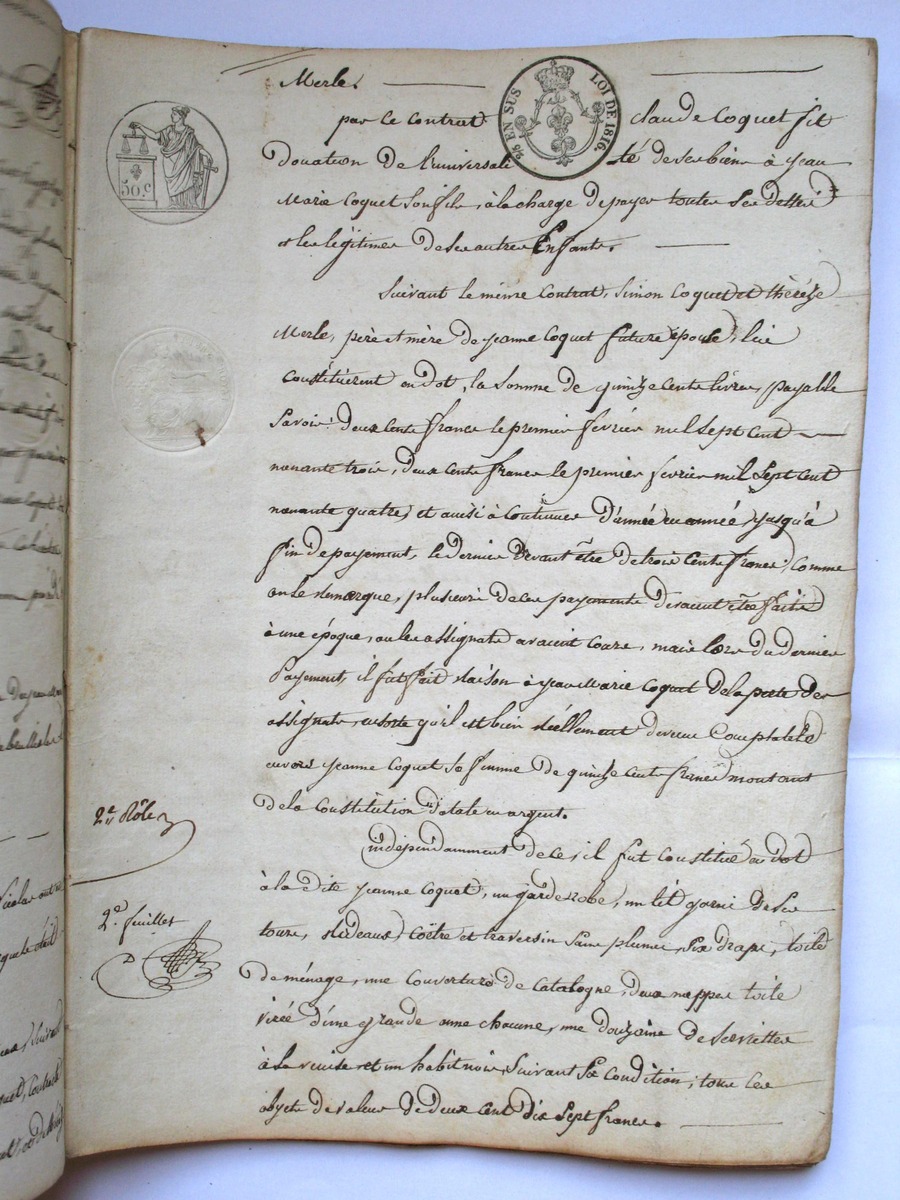 Merle.
par ce contrat claude Coquet fit
Donation De l'universalité de ses biens à jean
Marie Coquet son fils, à la charge De payer toutes ses Dettes
et les légitimes De ses autres Enfants.
Suivant le même Contrat, Simon Coquet et thérèze
Merle, père et mère De jeanne Coquet future épouse, lui
constituèrent en Dot, la somme De quinze cents livres, payable
Savoir: Deux Cents francs le premier février mil sept cent
nonante trois, Deux cents francs le premier février mil sept cent
nonante quatre, et ainsi à continuer D'année en année jusqu'à
fin De payement, le dernier Devant être De trois Cents francs; Comme
on le remarque, plusieurs De ces payements Devaient être faits
à une époque, où les assignats avaient Cours, mais lors Du Dernier
payement, il fut fait raison à jean Marie Coquet De la perte Des
assignats, ensorte qu'il est bien réellement Devenu Comptable
envers jeanne Coquet sa femme De quinze Cents francs montant
De la Constitution Dotale en argent.
indépendamment De ce, il fut Constitué en Dot
à la Dite jeanne Coquet, un garderobe, un lit garni De ses
tours, rideaux, Coëtre et traversin sans plumes, six Draps, toile
De ménage, une Couverture De Catalogne, Deux nappes toile
D'une grande aune chacune, une Douzaine De serviettes
à la et un habit noir, Suivant sa Condition; tous ces
objets De valeur De Deux Cent Dix sept francs.
2e. Rôle
2e. feuillet
50 c
2/5 EN SUS
LOI DE 1816